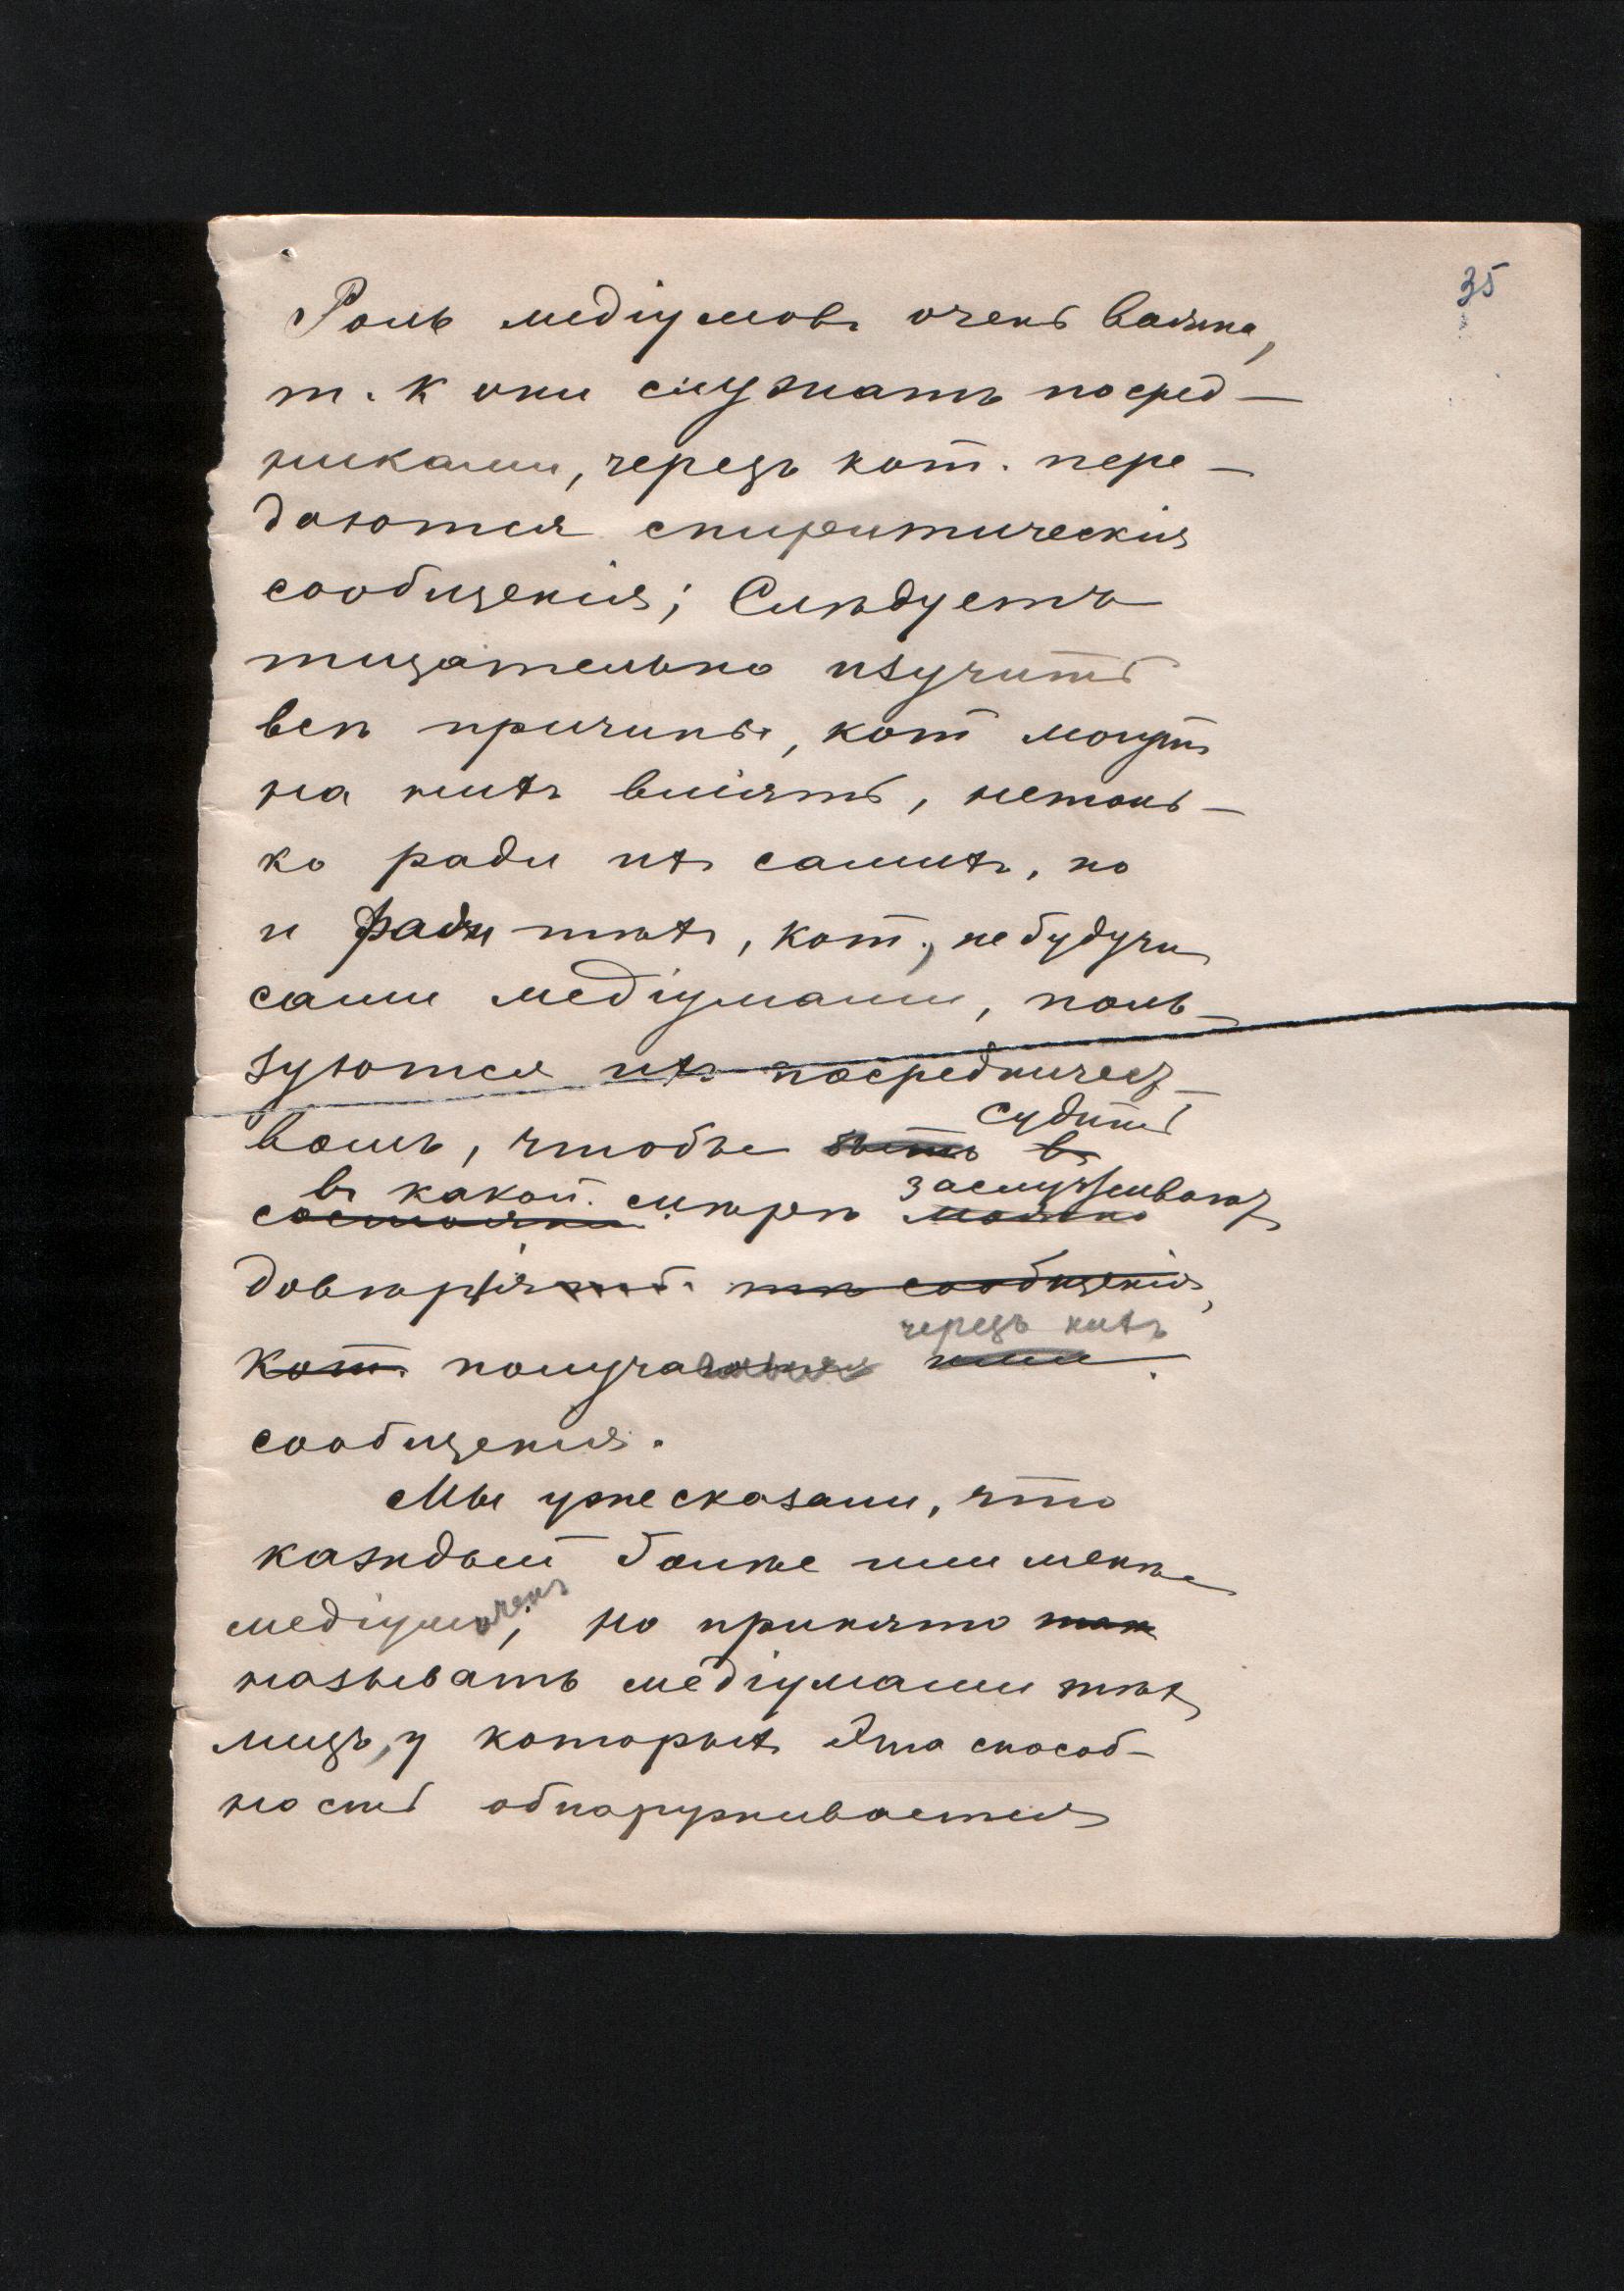 35
Роль медіумовъ очень важна,
т. к они служатъ посред-
никами, черезъ кот. пере-
даются спиритическія
сообщенія; Слѣдуетъ
тщательно изучить
всѣ причины, кот могутъ
на нихъ вліять, нетоль-
ко ради ихъ самихъ, но
и ради тѣхъ, кот., не будучи
сами медіумами, поль-
зуются ихъ посредничест-
вомъ, чтобы быть въ судить
состояніи въ какой мѣрѣ можно заслуживаютъ
довѣрія тѣ сообщенія,
кот. получаемыя ими черезъ нихъ
сообщенія.
Мы уже сказали, что
каждый болѣе или менѣе
медіумиченъ, но принято так
называть медіумами тѣхъ
лицъ, у которыхъ эта способ-
ность обнаруживается